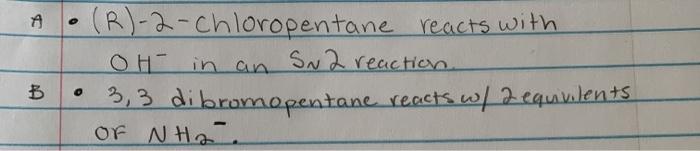 A • (R)-2-chloropentane reacts with
OH⁻ in an SN2 reaction.
B • 3,3 dibromopentane reacts w/ 2 equivilents
OF NH₂⁻.